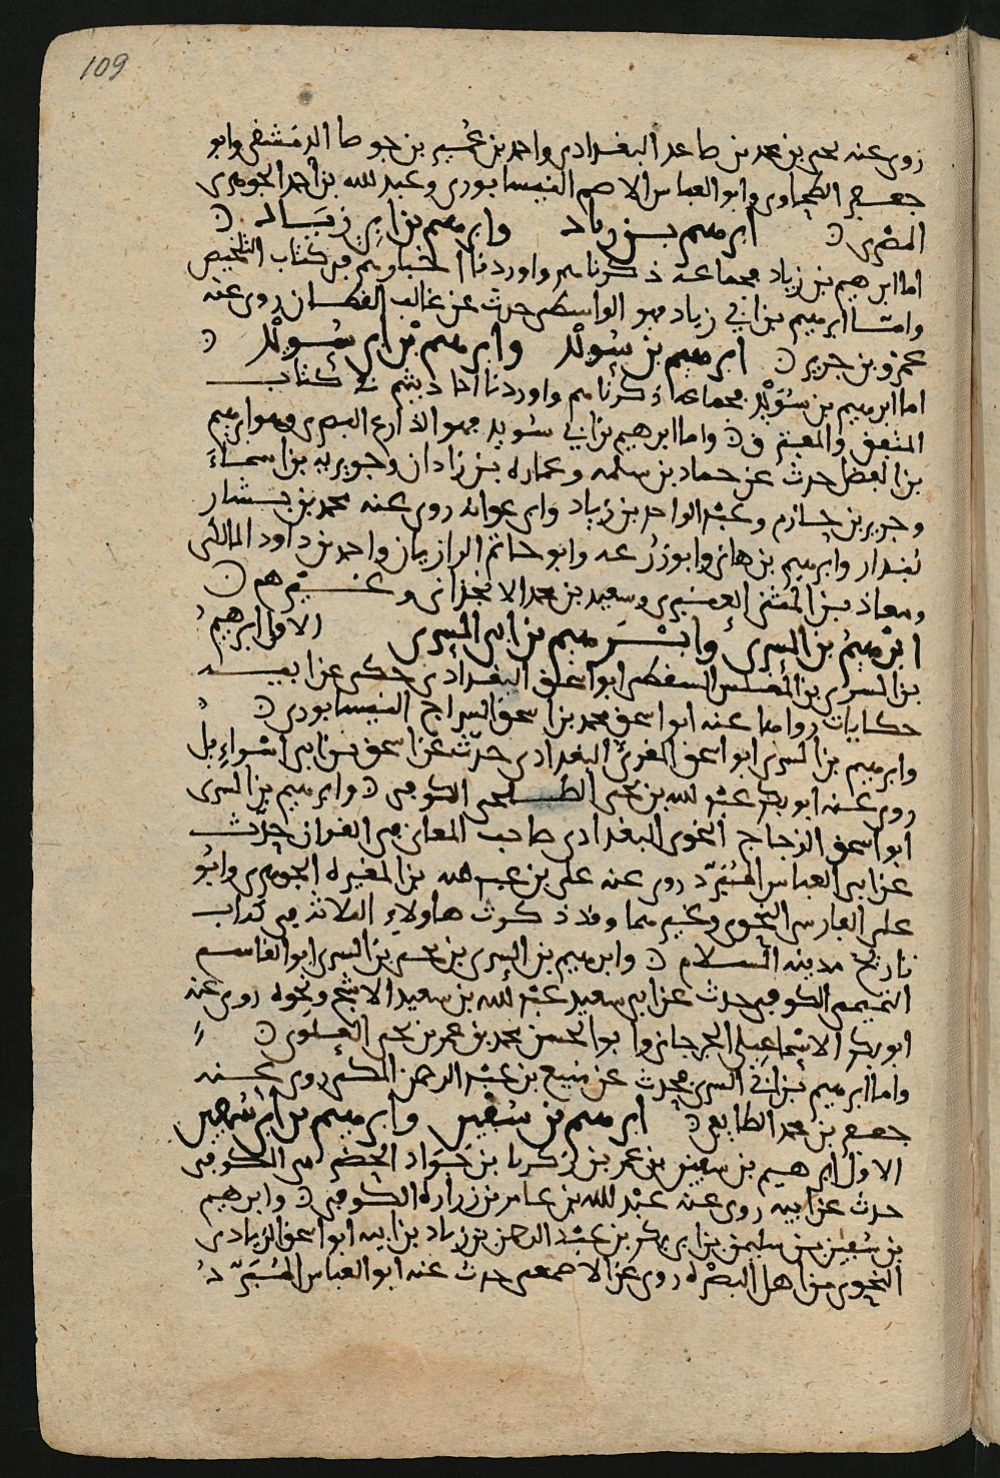 109
روى عنه يحيى بن محمد بن صاعد البغدادي واحمد بن عمير بن جوصا الدمشقي وابو
جعفر الطحاوي وابو العباس الاصم النيسابوري وعبد الله بن احمد الجوهري
المصري ابرهيم بن زياد وابرهيم بن ابي زياد
اما ابرهيم بن زياد فجماعة ذكرناهم واوردنا اخبارهم في كتاب التلخيص
وامّا ابرهيم بن ابي زياد فهو الواسطي حدث عن غالب القطان روى عنه
عمرو بن جرير ابرهيم بن سُويْد وابرهيم بْن ابي سُويْد
اما ابرهيم بن سُوَيْد فجماعة ذكرناهم واوردنا احاديثهم في كتاب
المتفق والمفترق واما ابرهيم بن ابي سُويد فهو الذارع البصري وهو ابرهيم
بن الفضل حدث عن حماد بن سلمه وعماره بن زاذان وجويريه بن اسماءَ
وجرير بن حازم وعبْد الواحد بن زياد وابي عوانه روى عنه محمد بن بشار
بُندار وابرهيم بن هانئ وابو زرْعه وابو حاتم الرازيان واحمد بن داود المالكي
ومعاذ بن المثنى العنبري وسعيد بن محمد الانجذاني وغيْرهم
ابرْهيمُ بن السري وابْرهيم بن ابي السري الاول ابرهيمُ
بن السري بن المغلس السقطي ابو اسحق البغدادي حكى عن ابيه
حكايات رواها عنه ابو اسحق محمد بن اسحق السراج النيسابوري
وابرهيم بن السري ابو اسحق المقرئ البغدادي حدّث عن اسحق بن ابي اسْراءيل
روى عنه ابو بكر عبْد الله بن يحيى الطلحي الكوفي وابرهيم بن السري
ابو اسحق الزجاج النحوي البغدادي صاحب المعاني في القران حدّث
عن ابي العباس المُبَرّد روى عنه علي بن عبد الله بن المغيره الجوهري وابُو
علي الفارسي النحوي وغيرهما وقد ذكرت هاولاءِ الثلاثة في كتاب
تاريخ مدينه السلام وابرهيم بن السري بن يحيى بن السري ابو القاسم
التميمي الكوفي حدث عن ابي سعيد عبْد الله بن سعيد الاشج ونحوه روى عنه
ابو بكر الاسْماعيلي الجرجاني وابو الحسن محمد بن عمر بن يحيى العلوي
واما ابرهيم بن ابي السري فحدث عن منيع بن عبْد الرحمن المكي روى عنه
جعفر بن محمد الطايفي ابرهيم بن سُفيْن وابرهيم بن ابي سُفيْن
الاول ابرهيم بن سفيْن بن عمر بن زكريا بن حَوَاد الحضرمي الكوفي
حدث عن ابيه روى عنه عبْد الله بن عامر بن زراره الكُوفي وابرهيم
بن سُفيْن بن سليمن بن ابي بكر بن عبْد الرحمن بن زياد بن ابيه ابو اسحق الزيادي
النحوي من اهل البصْره روى عن الاصمعي حدث عنه ابو العباس المُبَرّد